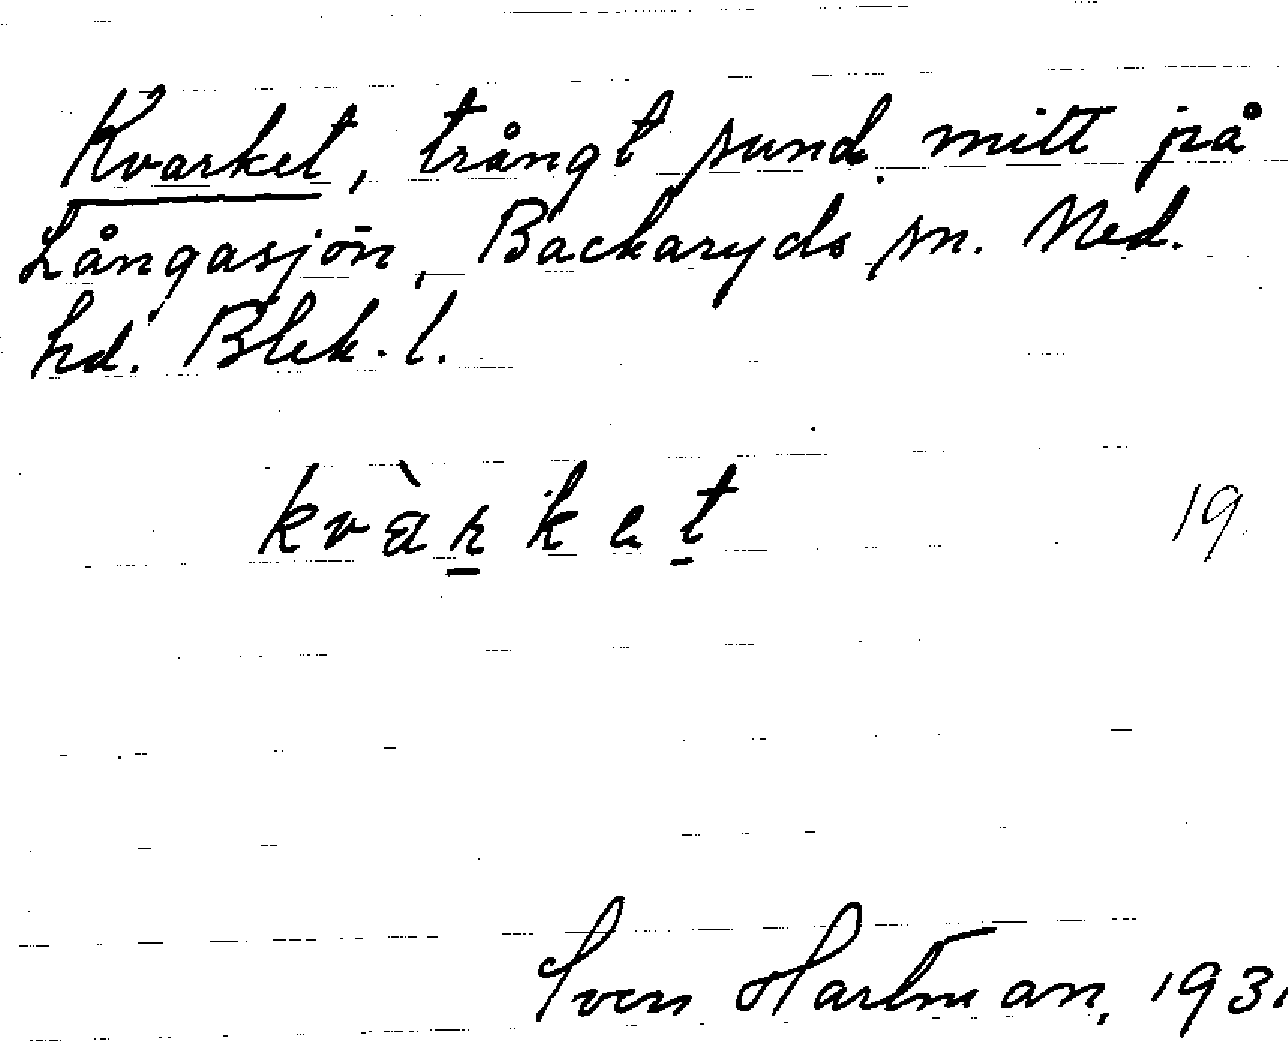 Kvarket, trångt sund mitt på
Långasjön, Backaryds sn. Med.
hd. Blek. l.
kvàrket 19
Sven Hartman, 1931